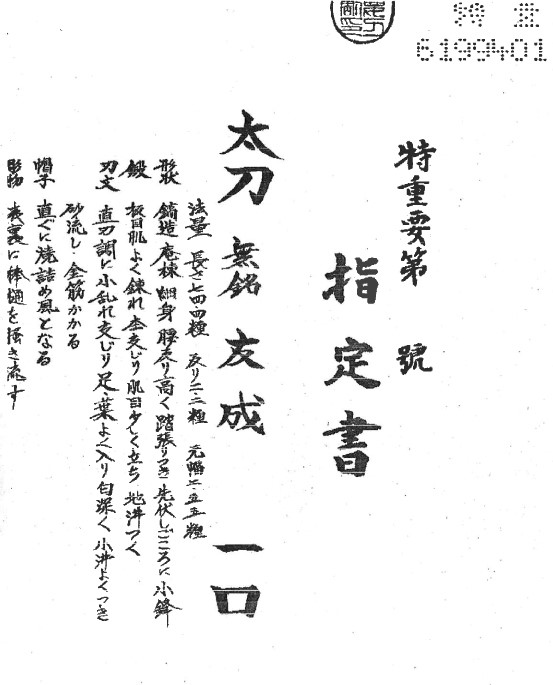 特重
6199401
特重要第 號
指定書
太刀 無銘 友成 一口
法量 長さ七四・四糎 反り二・二糎 元幅二・五五糎
形状 鎬造 庵棟 細身 腰反り高く 踏張りつき 先伏しごころに小鋒
鍛 板目肌よく錬れ 杢交じり 肌目少しく立ち 地沸つく
刃文 直刃調に小乱れ交じり 足・葉よく入り 匂深く 小沸よくつき
砂流し・金筋かかる
帽子 直ぐに焼詰め風となる
彫物 表裏に棒樋を掻き流す